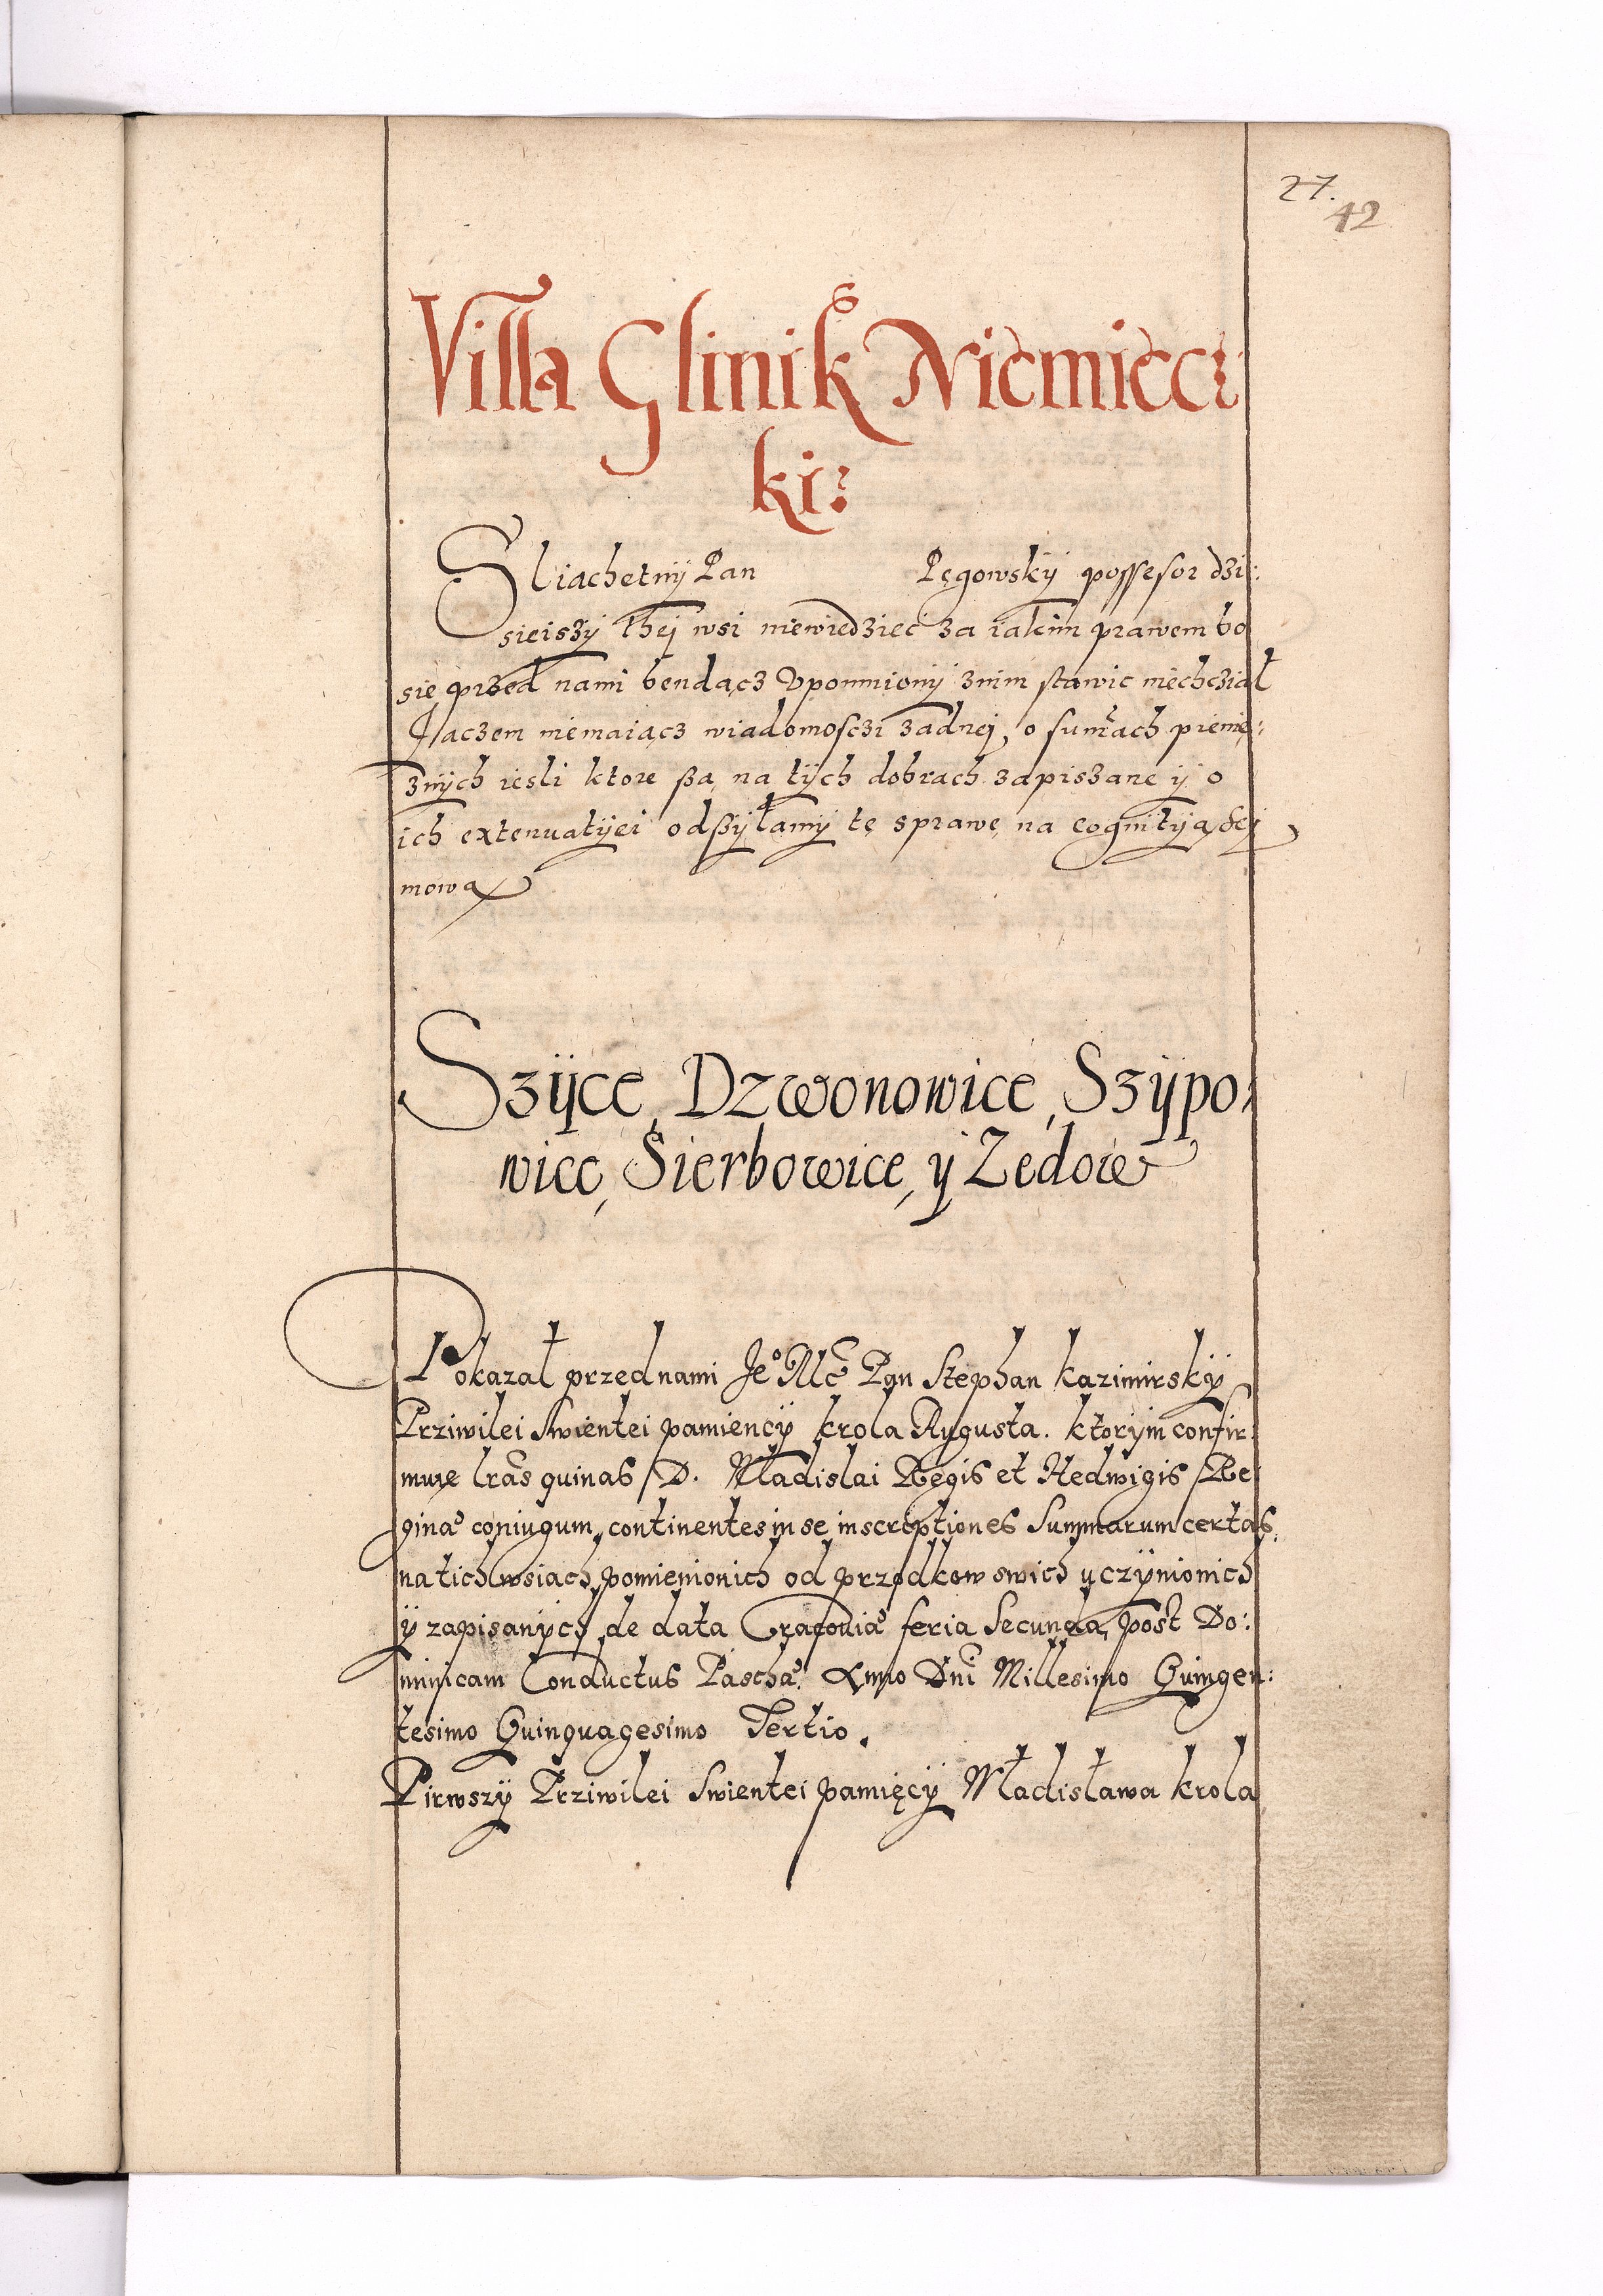 27.
42
Villa Glinik Niemiec:
ki:
Sliachetnÿ Pan Pęgowskÿ possesor dzi:
sieiszÿ thej wsi niewiedziec za iakim prawem bo
się przed nami bendącz Vpomnionÿ znim stawic niechcział
Jaczem niemaiącz wiadomosczi zadnej, o sum̃ach pienię:
znÿch iesli ktore ßa, na tÿch dobrach zapiszane ÿ o
ich extenuatÿei odßÿłamÿ tę sprawę na cognitÿą Sej
mową
Szÿce, Dzwonowice, Szÿpo:
wice, Sierbowice, ÿ Zedowe
Pokazał przed nami Je° Mc̃ Pan Stephan Kazimirskÿ
Prziwilei Swientei pamiencÿ krola Augusta. ktorÿm confir:
muie lrãs quinas D. Wladislai Regis et Hedwigis Re
ginæ coniugum, continentes in se inscriptiones Summarum certas,
na tich wsiach pomienionich od przodkow swich uczÿnionich
ÿ zapisanÿch, de data Cracoviæ feria Secunda, post Do:
minicam Conductus Paschæ. Anno Dni Millesimo Quingen:
tesimo Quinquagesimo Tertio.
Pirwszÿ Prziwilei Swientei pamięcÿ Władisława krola